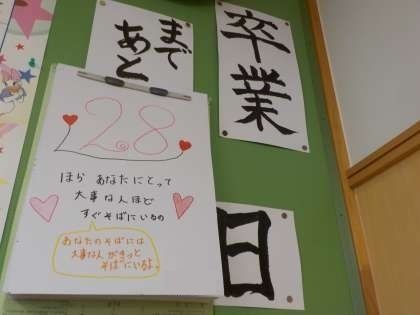 卒業
まで
あと
28
日
ほら あなたにとって
大事な人ほど
すぐそばにいるの
あなたのそばには
大事な人がきっと
そばにいるよ。